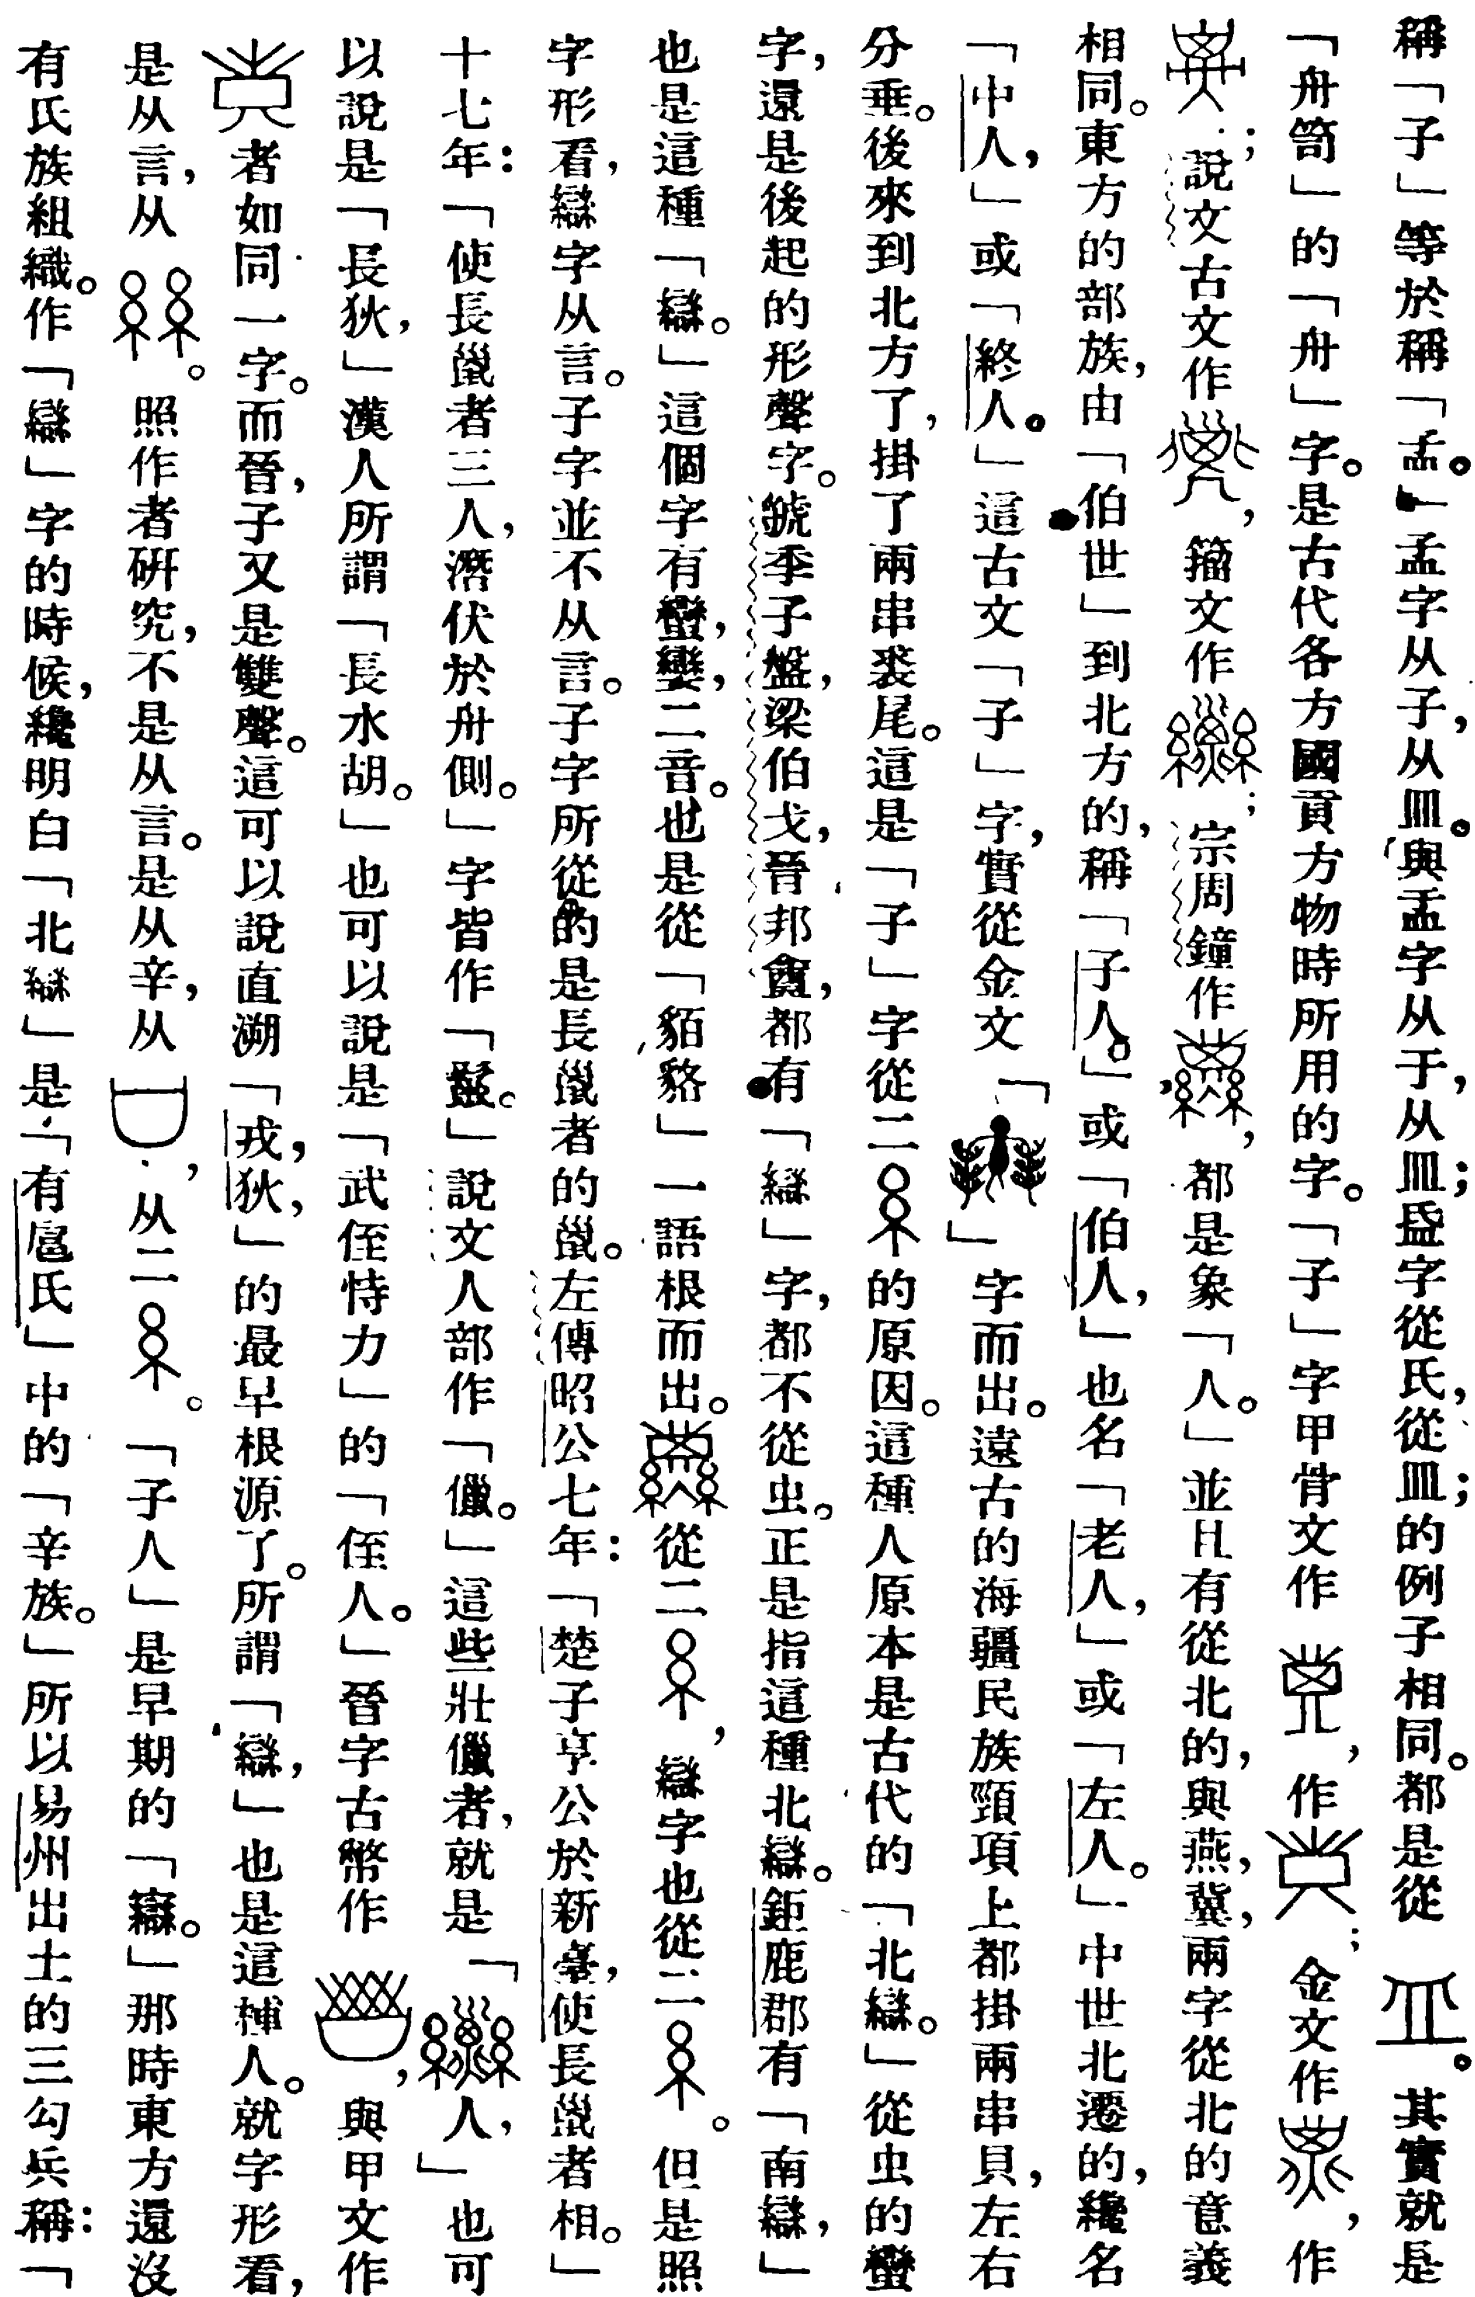 稱「子」等於稱「孟。」孟字从子，从皿。與盂字从于，从皿；盁字從氏，從皿；的例子相同。都是從 。其實就是
「舟笥」的「舟」字。是古代各方國貢方物時所用的字。「子」字甲骨文作 ，作 ；金文作 ，作
；說文古文作 ，籀文作 ；宗周鐘作 ，都是象「人。」並且有從北的，與燕，冀，兩字從北的意義
相同。東方的部族，由「伯世」到北方的，稱「子人。」或「伯人，」也名「老人，」或「左人。」中世北遷的，纔名
「中人，」或「終人。」這古文「子」字，實從金文「 」字而出。遠古的海疆民族頸項上都掛兩串貝，左右
分垂。後來到北方了，掛了兩串裘尾。這是「子」字從二 的原因。這種人原本是古代的「北䜌。」從虫的蠻
字，還是後起的形聲字。虢季子盤，梁伯戈，晉邦盦，都有「䜌」字，都不從虫。正是指這種北䜌。鉅鹿郡有「南䜌，」
也是這種「䜌。」這個字有蠻，孌，二音。也是從「貊貉」一語根而出。 從二 ，䜌字也從二 。但是照
字形看，䜌字从言。子字並不从言。子字所從的是長鬣者的鬣。左傳昭公七年：「楚子享公於新臺，使長鬣者相。」
十七年：「使長鬣者三人，潛伏於舟側。」字皆作「鬣。」說文人部作「儠。」這些壯儠者，就是「 人，」也可
以說是「長狄，」漢人所謂「長水胡。」也可以說是「武侄恃力」的「侄人。」晉字古幣作 ，與甲文作
者如同一字。而晉，子又是雙聲。這可以說直溯「戎，狄，」的最早根源了。所謂「䜌，」也是這種人。就字形看，
是从言，从 。照作者研究，不是从言。是从辛，从 ，从二 。「子人」是早期的「䜌。」那時東方還沒
有氏族組織。作「䜌」字的時候，纔明白「北䜌」是「有扈氏」中的「辛族。」所以易州出土的三勾兵稱：「